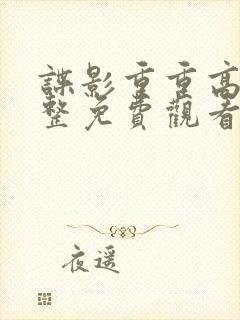 諜影重重高
整免費觀看
夜遥